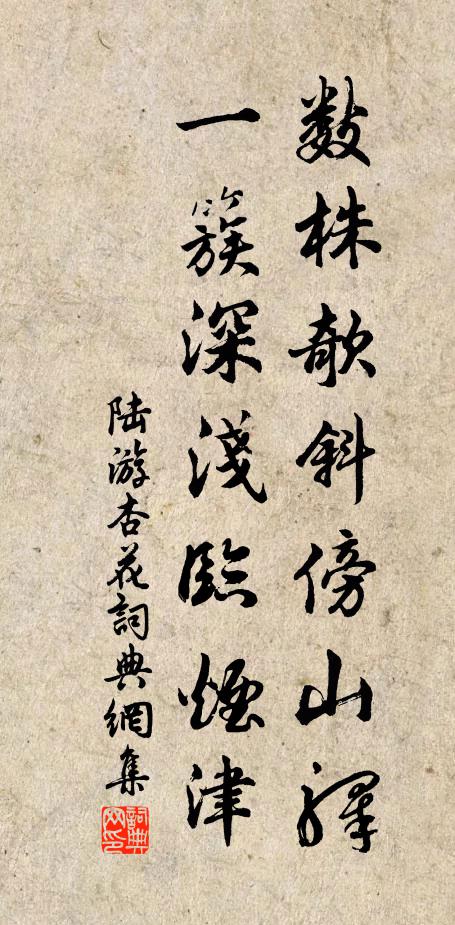 數株欹斜傍山驛
一簇深淺臨煙津
陸游杏花詞典網集
詞典
网印